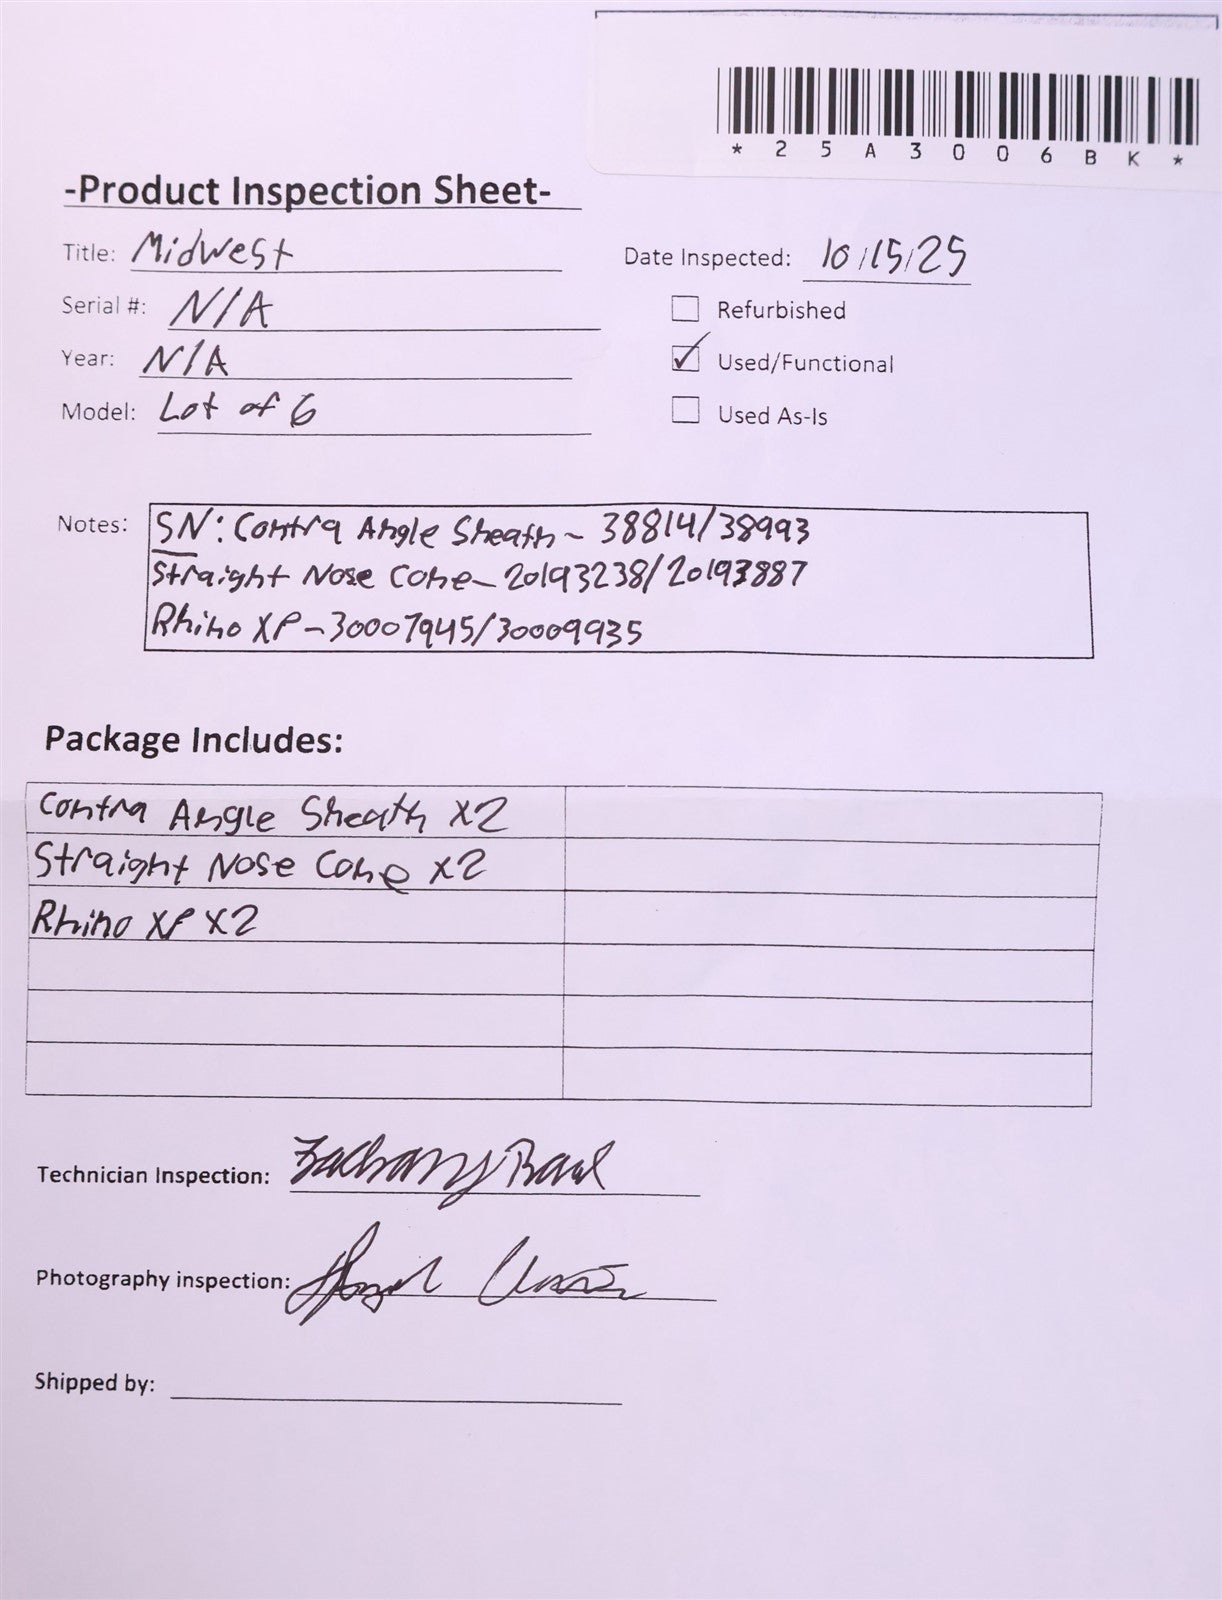 *25A3006BK*
-Product Inspection Sheet-
Title: Midwest
Date Inspected: 10/15/25
Serial #: N/A
Refurbished
Year: N/A
Used/Functional
Model: Lot of 6
Used As-Is
Notes: SN: Contra Angle Sheath - 38814/38993
Straight Nose Cone - 20193238/20193887
Rhino XP - 30007945/30009935
Package Includes:
Contra Angle Sheath x2
Straight Nose Cone x2
Rhino XP x2
Technician Inspection: Zachary
Photography inspection:
Shipped by: